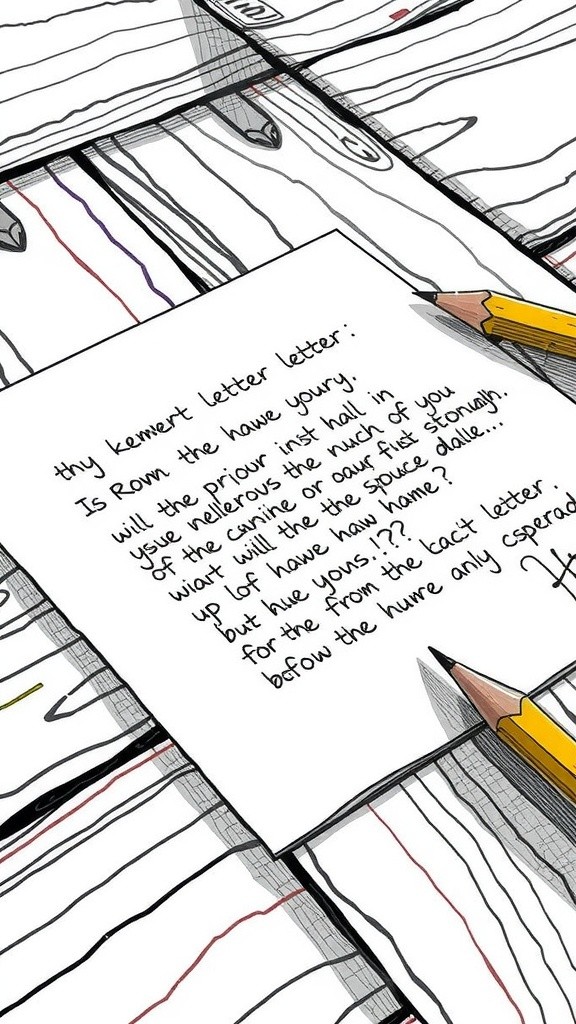 thy kemert letter letter:
Is Rovn the hawe youry.
will the prjour inst hall in
ysue nellerous the nuch of you
of the canine or oaur fist
wiart willl the the spouce dalle...
up lof hawe haw hame?
but hue yons.!??
for the from the kact letter.
bcfow the hurre anly csperad